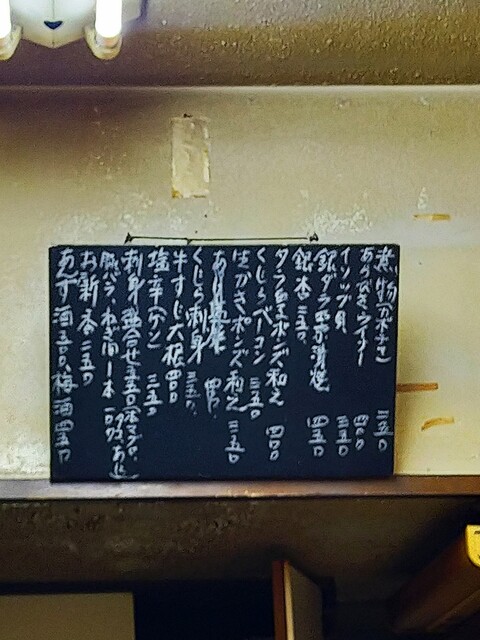 煮物(カボチャ) 三五〇
あらびきウインナー 四〇〇
イソップ貝 三五〇
銀ダラ西京漬焼 四五〇
銀杏 三五〇
タラ白子ポンズ和え 四〇〇
くじらベーコン 三五〇
生がきポンズ和え 三五〇
くじら刺身
牛すじ大根 四〇〇
塩辛 三五〇
刺身盛合せ 五五〇
豚バラ、ねぎ間 1本
お新香 二五〇
あんず酒 五〇〇、梅酒 四五〇